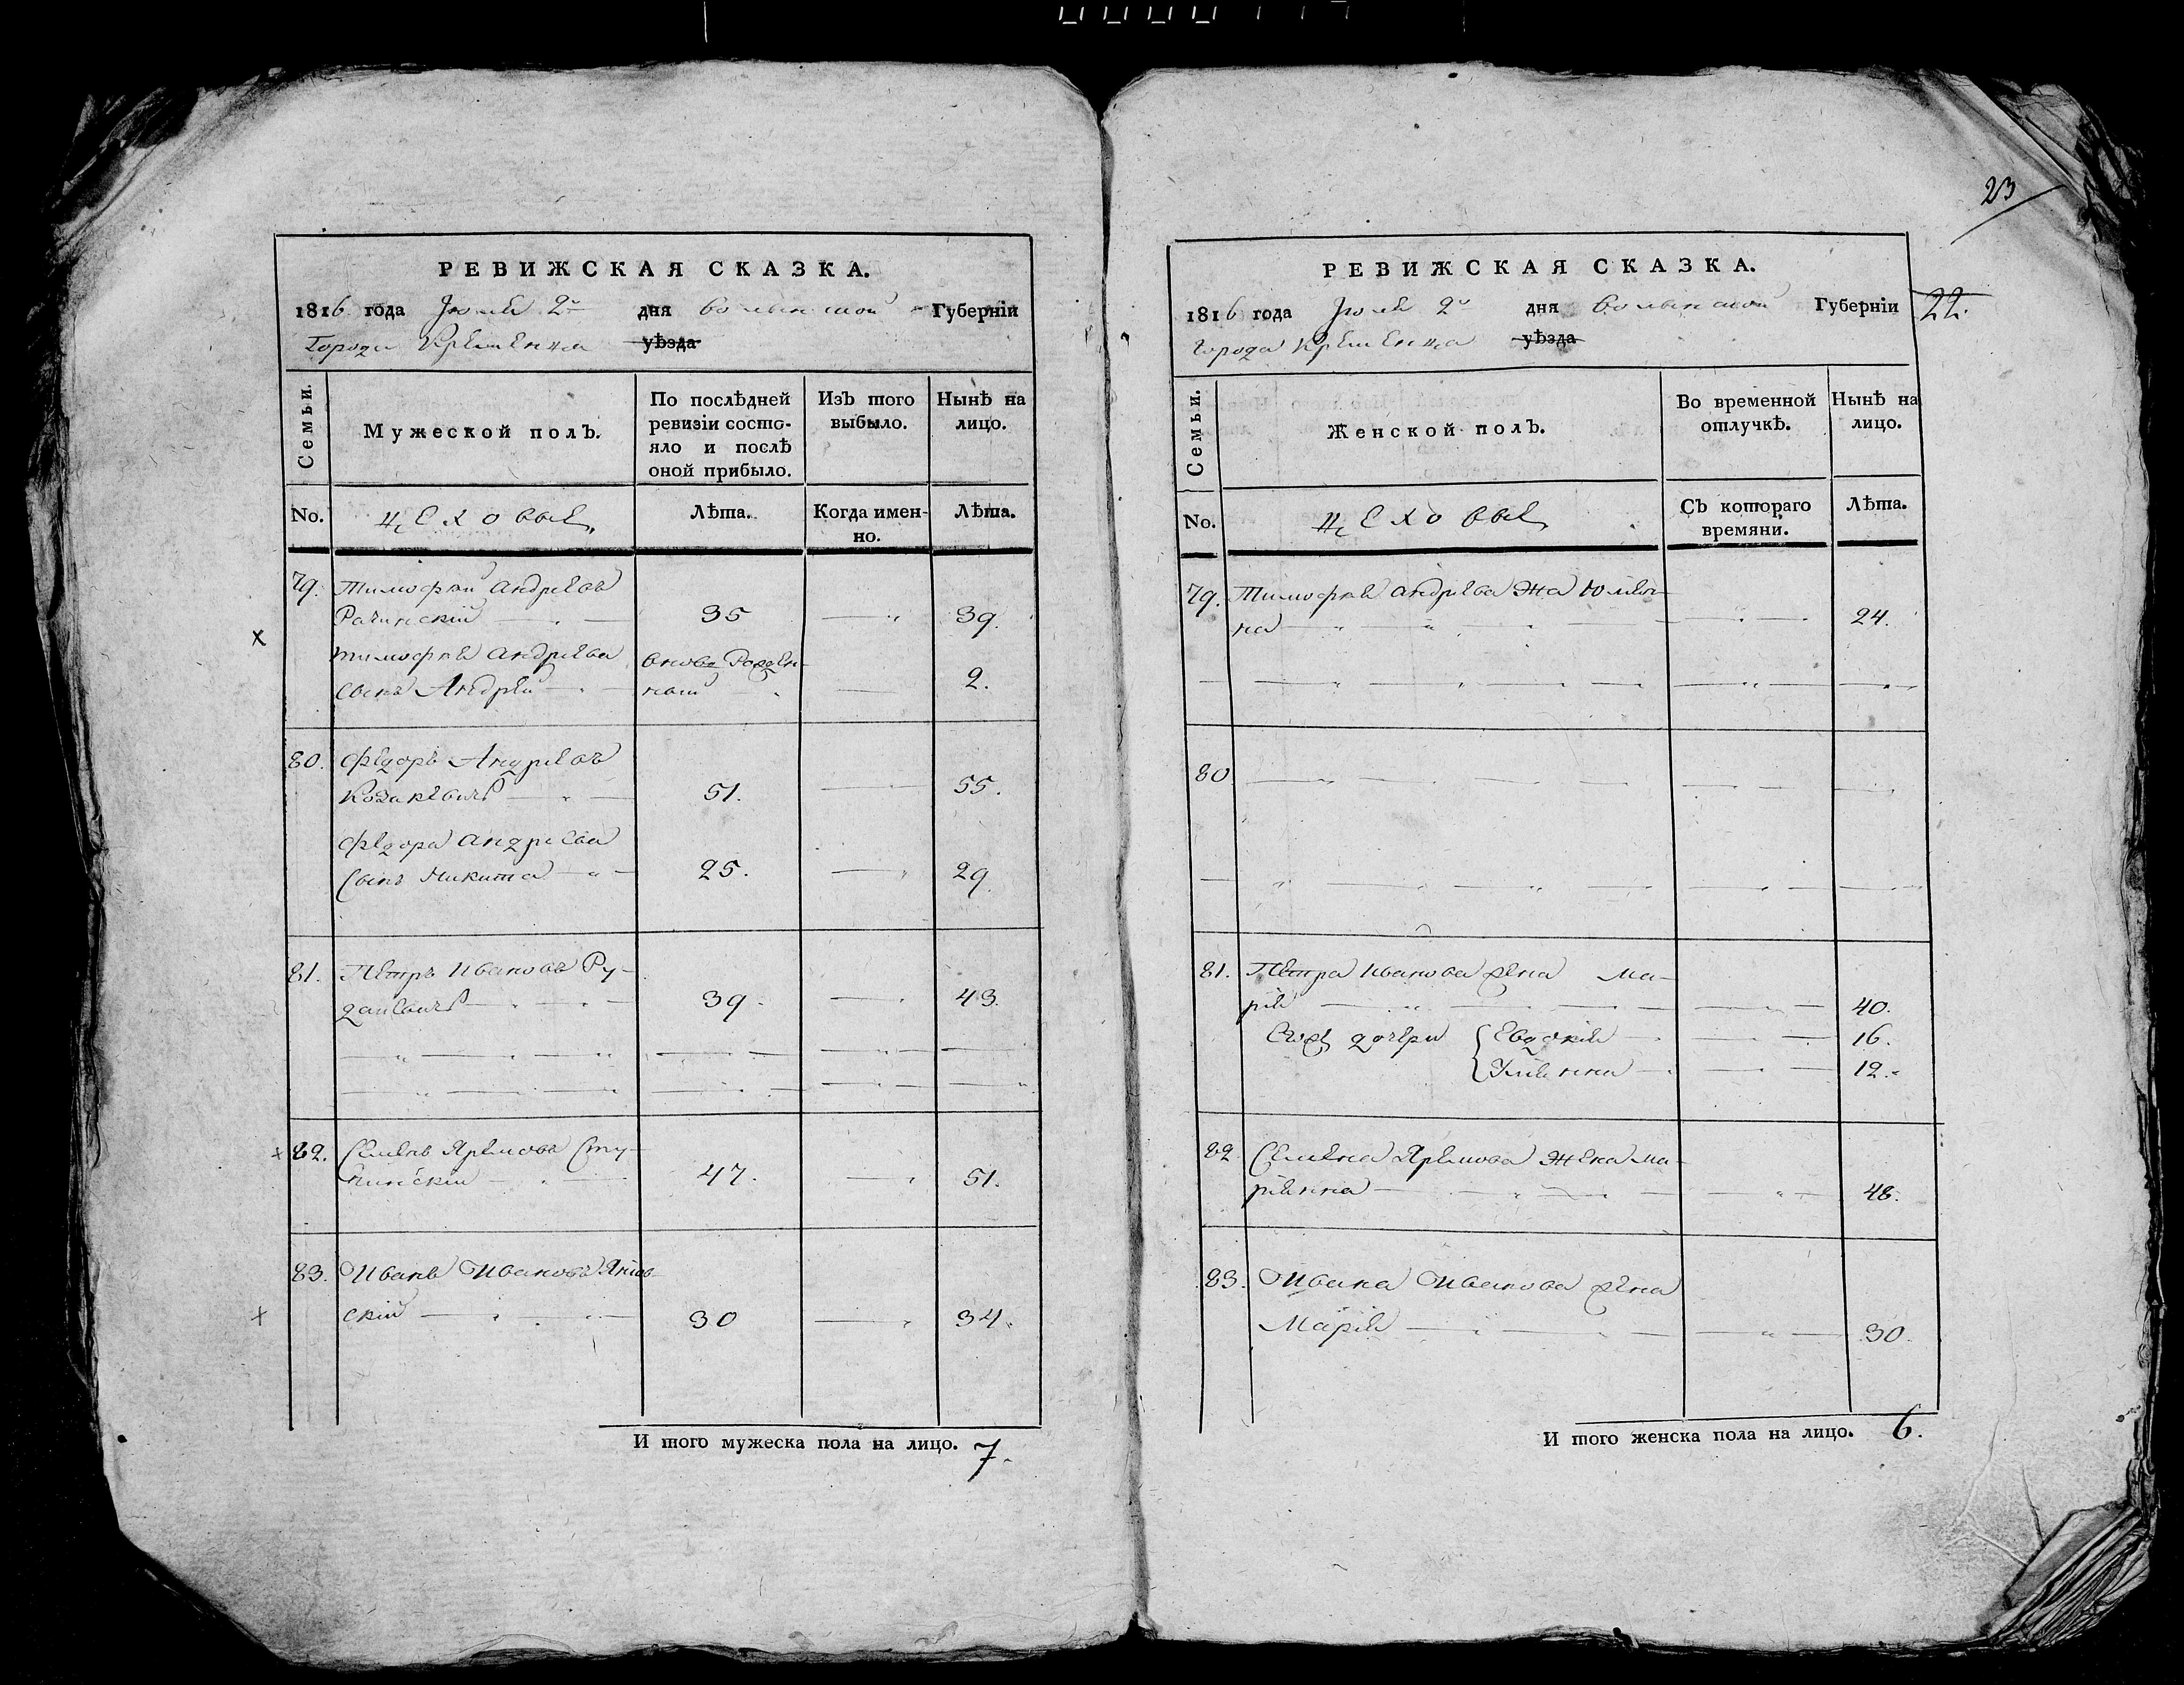 23
РЕВИЖСКАЯ СКАЗКА.
1816 года Июля 2го дня Волынской Губерніи
Города Кременца уѣзда
Семьи.
Мужеской полЪ.
По послѣдней ревизіи состо-
яло и послѣ
оной прибыло.
ИзЪ того выбыло.
НынѢ на лицо.
No.
цеховые
Лѣта.
Когда имен-
но.
Лѣта.
79. Тимофей Андреевъ
Рачинскій 35 39.
Тимофея Андреева вновь Рожден-
сынъ Андрей ный 2.
80. Федоръ Андреевъ
Козакевичъ 51. 55.
Федора Андреева
сынъ Никита 25. 29.
81. Петръ Ивановъ Ру-
39. 43.
82. Семенъ Яремовъ Сту-
пинскій 47. 51.
83. Иванъ Ивановъ
скій 30 34.
И того мужеска пола на лицо. 7.
РЕВИЖСКАЯ СКАЗКА.
1816 года Июля 2го дня Волынской Губерніи 22.
Города Кременца уѣзда
Семьи.
Женской полЪ.
Во временной
отлучкѢ.
НынѢ на
лицо.
No.
цеховые
СЪ котораго
времяни.
Лѣта.
79. Тимофея Андреева жена Юлия-
на 24.
80.
81. Петра Иванова жена Ма-
рія 40.
Его дочери Евдокія 16.
Уліянна 12.
82. Семена Яремова жена Ма-
ріянна 48.
83. Ивана Иванова жена
Марія 30.
И того женска пола на лицо. 6.